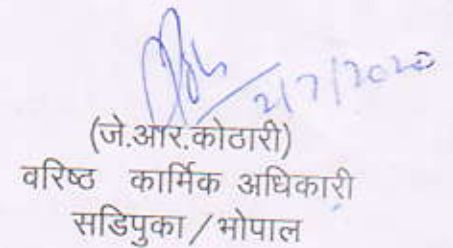 2/7/2020
(जे.आर.कोठारी)
वरिष्ठ कार्मिक अधिकारी
सडिपुका/भोपाल